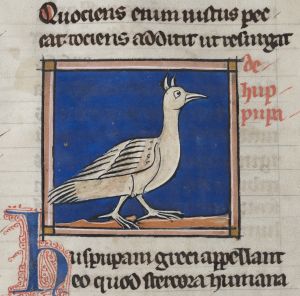 Quociens enim iustus pec
cat tociens ut resurgat
de
hup
pupa
Huspupam greci appellant
eo quod stercora humana